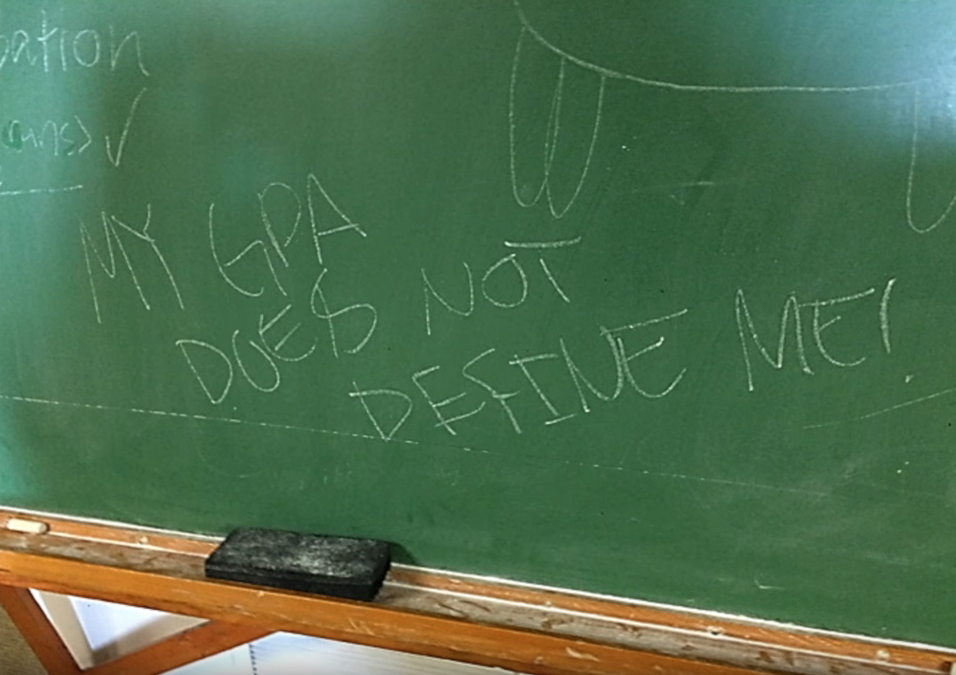 pation
ans> ✓
MY GPA
DOES NOT
DEFINE ME!